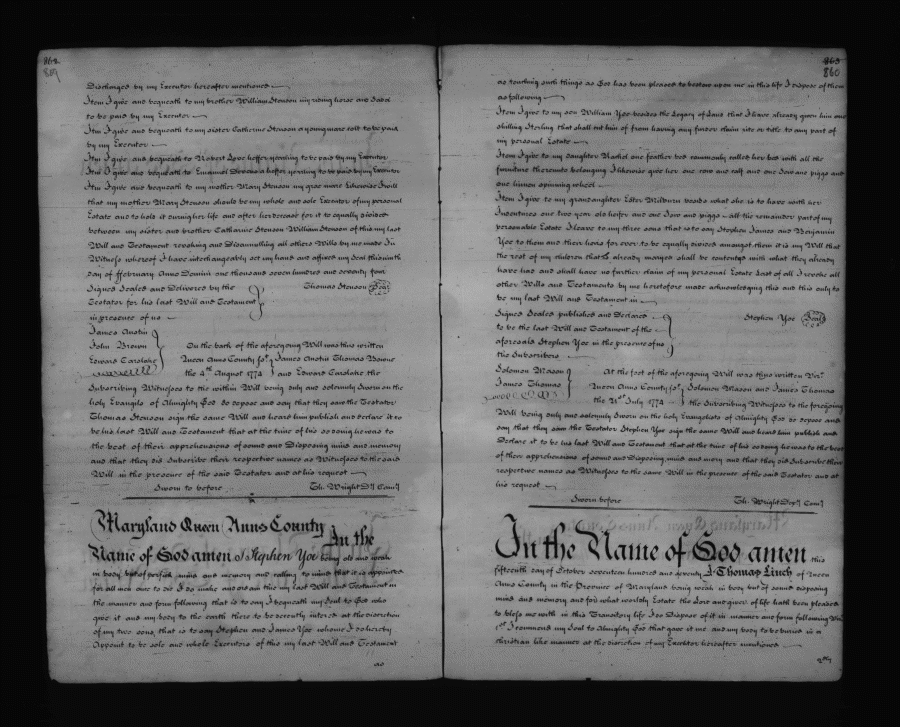 862
859
Discharged by my Executor hereafter mentioned
Item I give and bequeath to my brother William Stenson my riding horse and Sadel
to be paid by my Executor
Itm I give and bequeath to my sister Catherine Stenson a young mare colt to be paid
by my Executor
Itm I give and bequeath to Robert Love heffer yearling to be paid by my Executor
Itm I give and bequeath to Emanuel a heffer yearling to be paid by my Executor
Itm I give and bequeath to my mother Mary Stenson my gray mare Likewise I will
that my mother Mary Stenson should be my whole and sole Executor of my personal
Estate and to hold it during her life and after her decease for it to equally divided
between my sister and brother Catharine Stenson William Stenson of this my last
Will and Testament revoking and Disannulling all others Wills by me made In
Witness whereof I have interchangeably set my hand and affixed my Seal this ninth
day of ffebruary Anno Domini one thousand seven hundred and seventy four
Signed Sealed and Delivered by the
Testator for his last Will and Testament
in presence of us
Thomas Stenson Seal
James Austin
John Brown
Edward Carslake
On the back of the aforegoing Will was this written
Queen Anns County Sst James Austin Thomas Bowne
the 4th August 1774 and Edward Carslake the
Subscribing Witnesses to the within Will being duly and solemnly Sworn on the
holy Evangels of Almighty God do depose and say that they saw the Testator
Thomas Stenson sign the same Will and heard him publish and declare it to
be his last Will and Testament that at the time of his so doing he was to
the best of their apprehensions of sound and Disposing mind and memory
and that they did Subscribe their respective names as Witnesses to the said
Will in the presence of the said Testator and at his request
Sworn to before Th. Wright Dy Comy
Maryland Queen Anns County In the
Name of God amen I Stephen Yoe being old and weak
in body but of perfect mind and memory and calling to mind that it is appointed
for all men once to die I do make and ordain this my last Will and Testament in
the manner and form following that is to say I bequeath my Soul to God who
gave it and my body to the earth there to be decently intered at the discretion
of my two sons, that is to say Stephen and James Yoe whome I do hereby
Appoint to be sole and whole Executors of this my last Will and Testament
as
863
860
as touching such things as God has been pleased to bestow upon me in this life I dispose of them
as following
Item I give to my son William Yoe besides the Legacy of Land that I have already given him one
shilling Sterling that shall cut him of from having any further claim rite or title to any part of
my personal Estate
Item I give to my daughter Rachel one feather bed commonly called her bed with all the
furniture thereunto belonging I likewise give her one cow and calf and one Sow and piggs and
one linnen spinning wheel
Item I give to my grandaughter Ester Milburn besids what she is to have with her
Indentures one two year old heifer and one Sow and piggs all the remainder part of my
personable Estate I leave to my three sons that is to say Stephen James and Benjamin
Yoe to them and their heirs for ever to be equally divided amongst them it is my Will that
the rest of my children that is already maryed shall be contented with what they already
have had and shall have no farther claim of my personal Estate Last of all I revoke all
other Wills and Testaments by me heretofore made acknowledging this and this only to
be my last Will and Testament in
Signed Sealed published and Declared
to be the last Will and Testament of the
aforesaid Stephen Yoe in the presence of us
the Subscribers
Stephen Yoe Seal
Solomon Mason
James Thomas
At the foot of the aforegoing Will was this written Viz.
Queen Anns County Sst Solomon Mason and James Thomas
the 21st July 1774 the Subscribing Witnesses to the foregoing
Will being duly and solemnly Sworn on the holy Evangelists of Almighty God do depose and
say that they saw the Testator Stephen Yoe sign the same Will and heard him publish and
Declare it to be his last Will and Testament that at the time of his so doing he was to the best
of their apprehensions of sound and disposing mind and mory and that they did Subscribe their
respective names as Witnesses to the same Will in the presence of the said Testator and at
his request
Sworn before Th. Wright Depy Comy
In the Name of God amen this
fifteenth day of October seventeen hundred and seventy I Thomas Linch of Queen
Anns County in the Province of Maryland being weak in body but of sound disposing
mind and memory and for what worldly Estate the Lord and giver of life hath been pleased
to bless me with in this Transitory life I do Dispose of it in manner and form following Viz
1st I commend my Soul to Almighty God that gave it me and my body to be buried in a
christian like manner at the discretion of my Executor hereafter mentioned
2dly